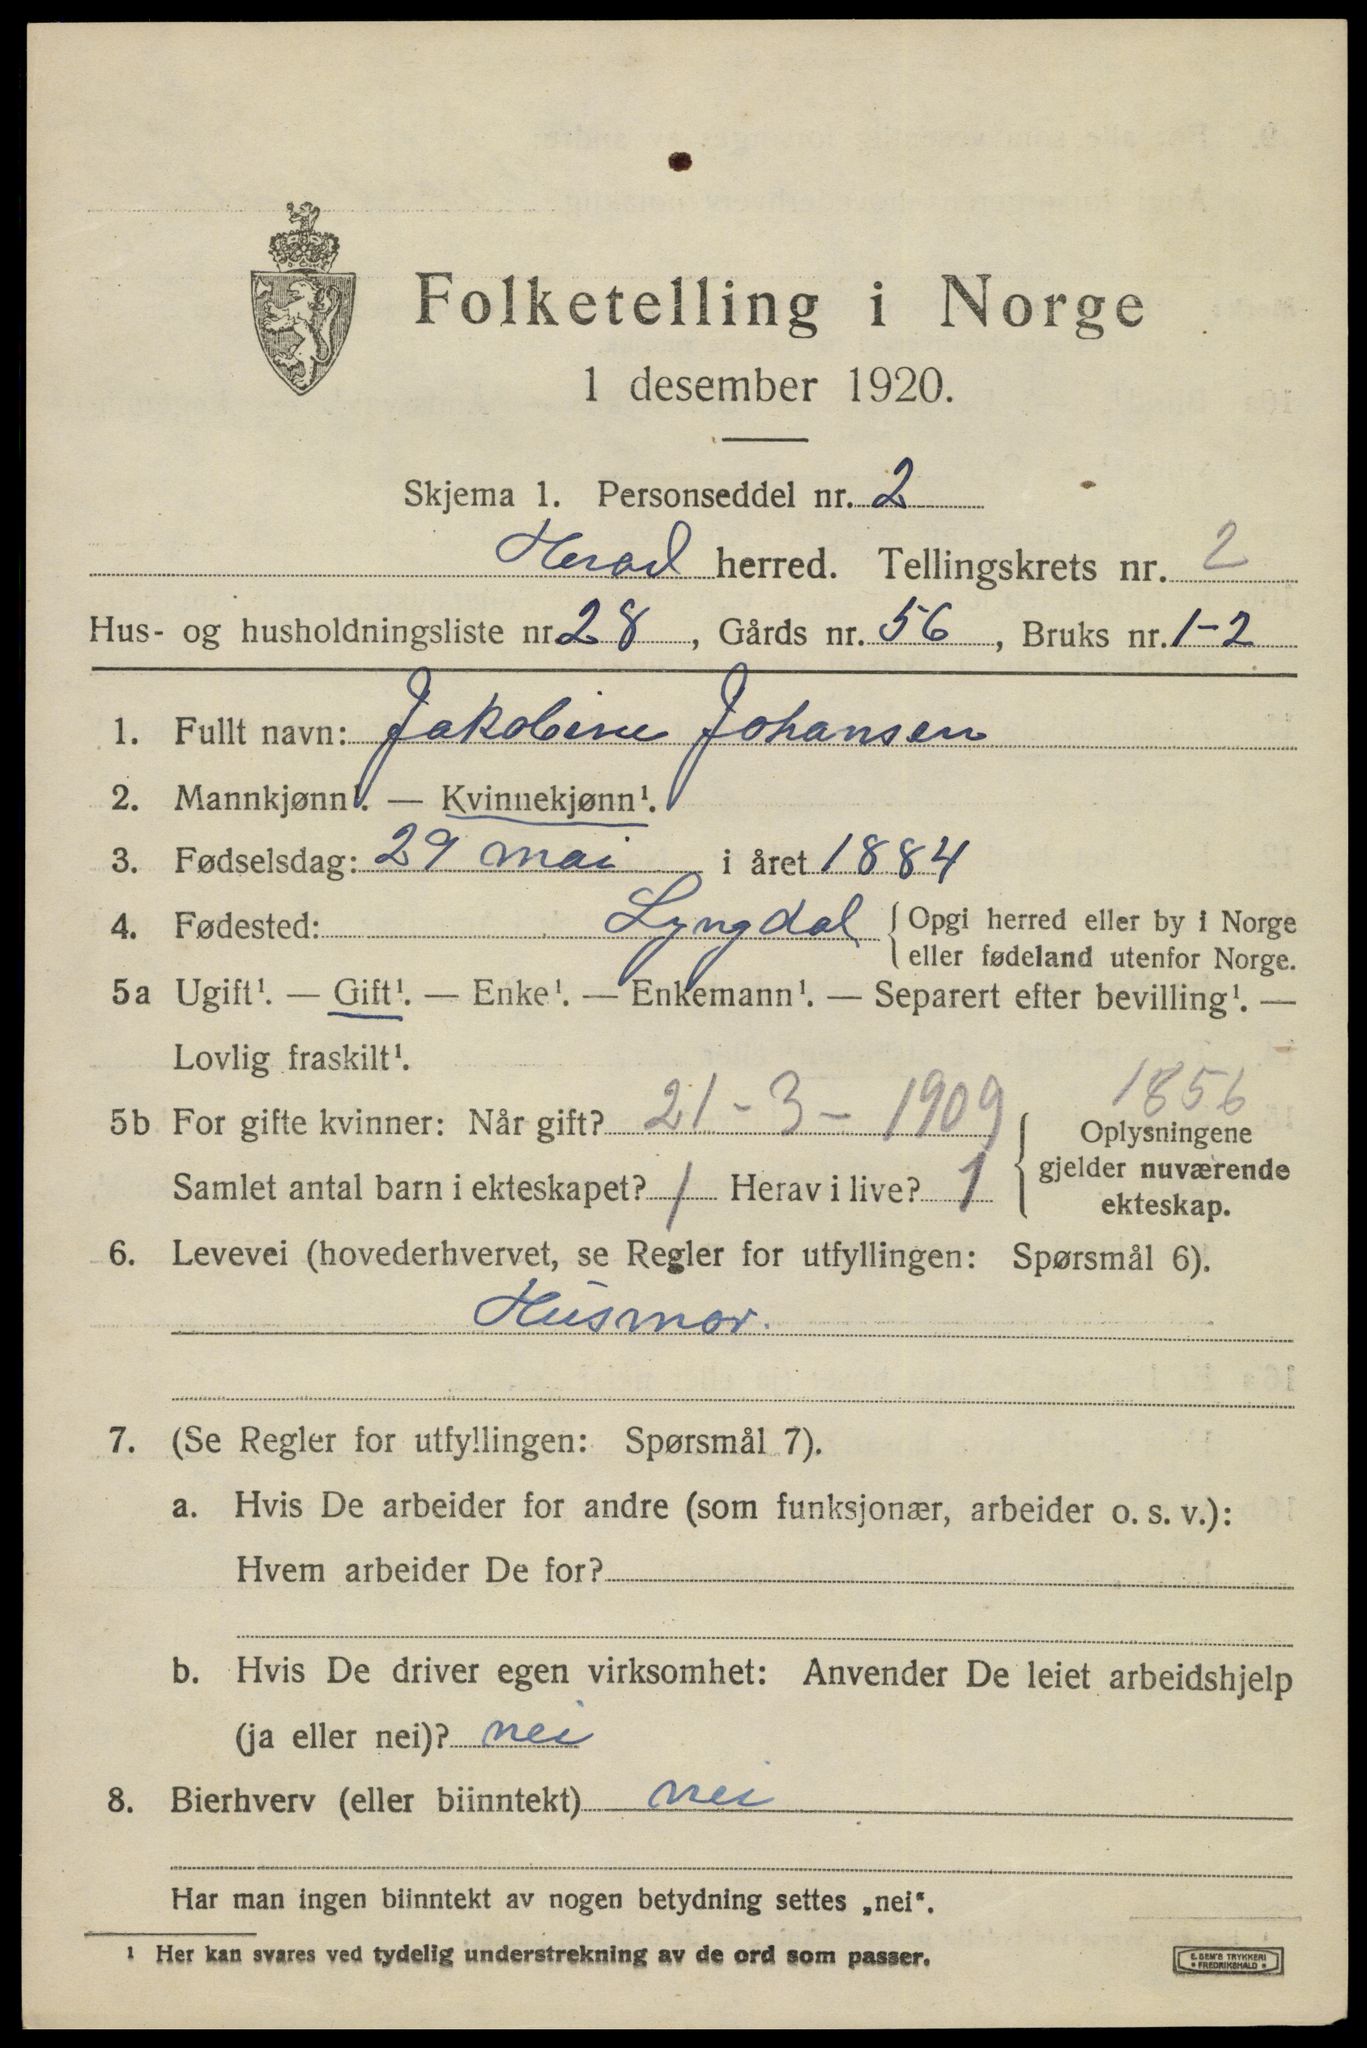 Folketelling i Norge
1 desember 1920.
Skjema 1. Personseddel nr. 2
Herad herred. Tellingskrets nr. 2
Hus- og husholdningsliste nr. 28, Gårds nr. 56, Bruks nr. 1-2
1. Fullt navn: Jakobine Johansen
2. Mannkjønn¹. — Kvinnekjønn¹.
3. Fødselsdag: 29 mai i året 1884
4. Fødested: Lyngdal { Opgi herred eller by i Norge
eller fødeland utenfor Norge.
5a Ugift¹. — Gift¹. — Enke¹. — Enkemann¹. — Separert efter bevilling¹. —
Lovlig fraskilt¹.
1856
5b For gifte kvinner: Når gift? 21-3-1909
Samlet antal barn i ekteskapet? 1 Herav i live? 1
{ Oplysningene
gjelder nuværende
ekteskap.
6. Levevei (hovederhvervet, se Regler for utfyllingen: Spørsmål 6).
Husmor.
7. (Se Regler for utfyllingen: Spørsmål 7).
a. Hvis De arbeider for andre (som funksjonær, arbeider o. s. v.):
Hvem arbeider De for?
b. Hvis De driver egen virksomhet: Anvender De leiet arbeidshjelp
(ja eller nei)? nei
8. Bierhverv (eller biinntekt) nei
Har man ingen biinntekt av nogen betydning settes „nei“.
¹ Her kan svares ved tydelig understrekning av de ord som passer.
E. SEM'S TRYKKERI
* FREDRIKSHALD *